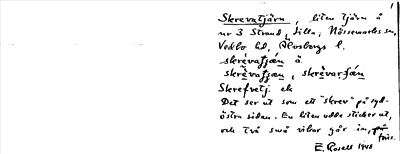 Skrevatjärn, liten tjärn å
nr 3 Strand, Lilla, Nössemarks sn,
Vedbo hd, Älvsborgs l.
skrèvatjạ́n å
skrèvatjan, skrèvartján
Skrefvetj. ek
Det ser ut som ett "skrev" på syd-
östra sidan. En liten udde sticker ut,
och två små vikar går in,
E. Rosell 1940